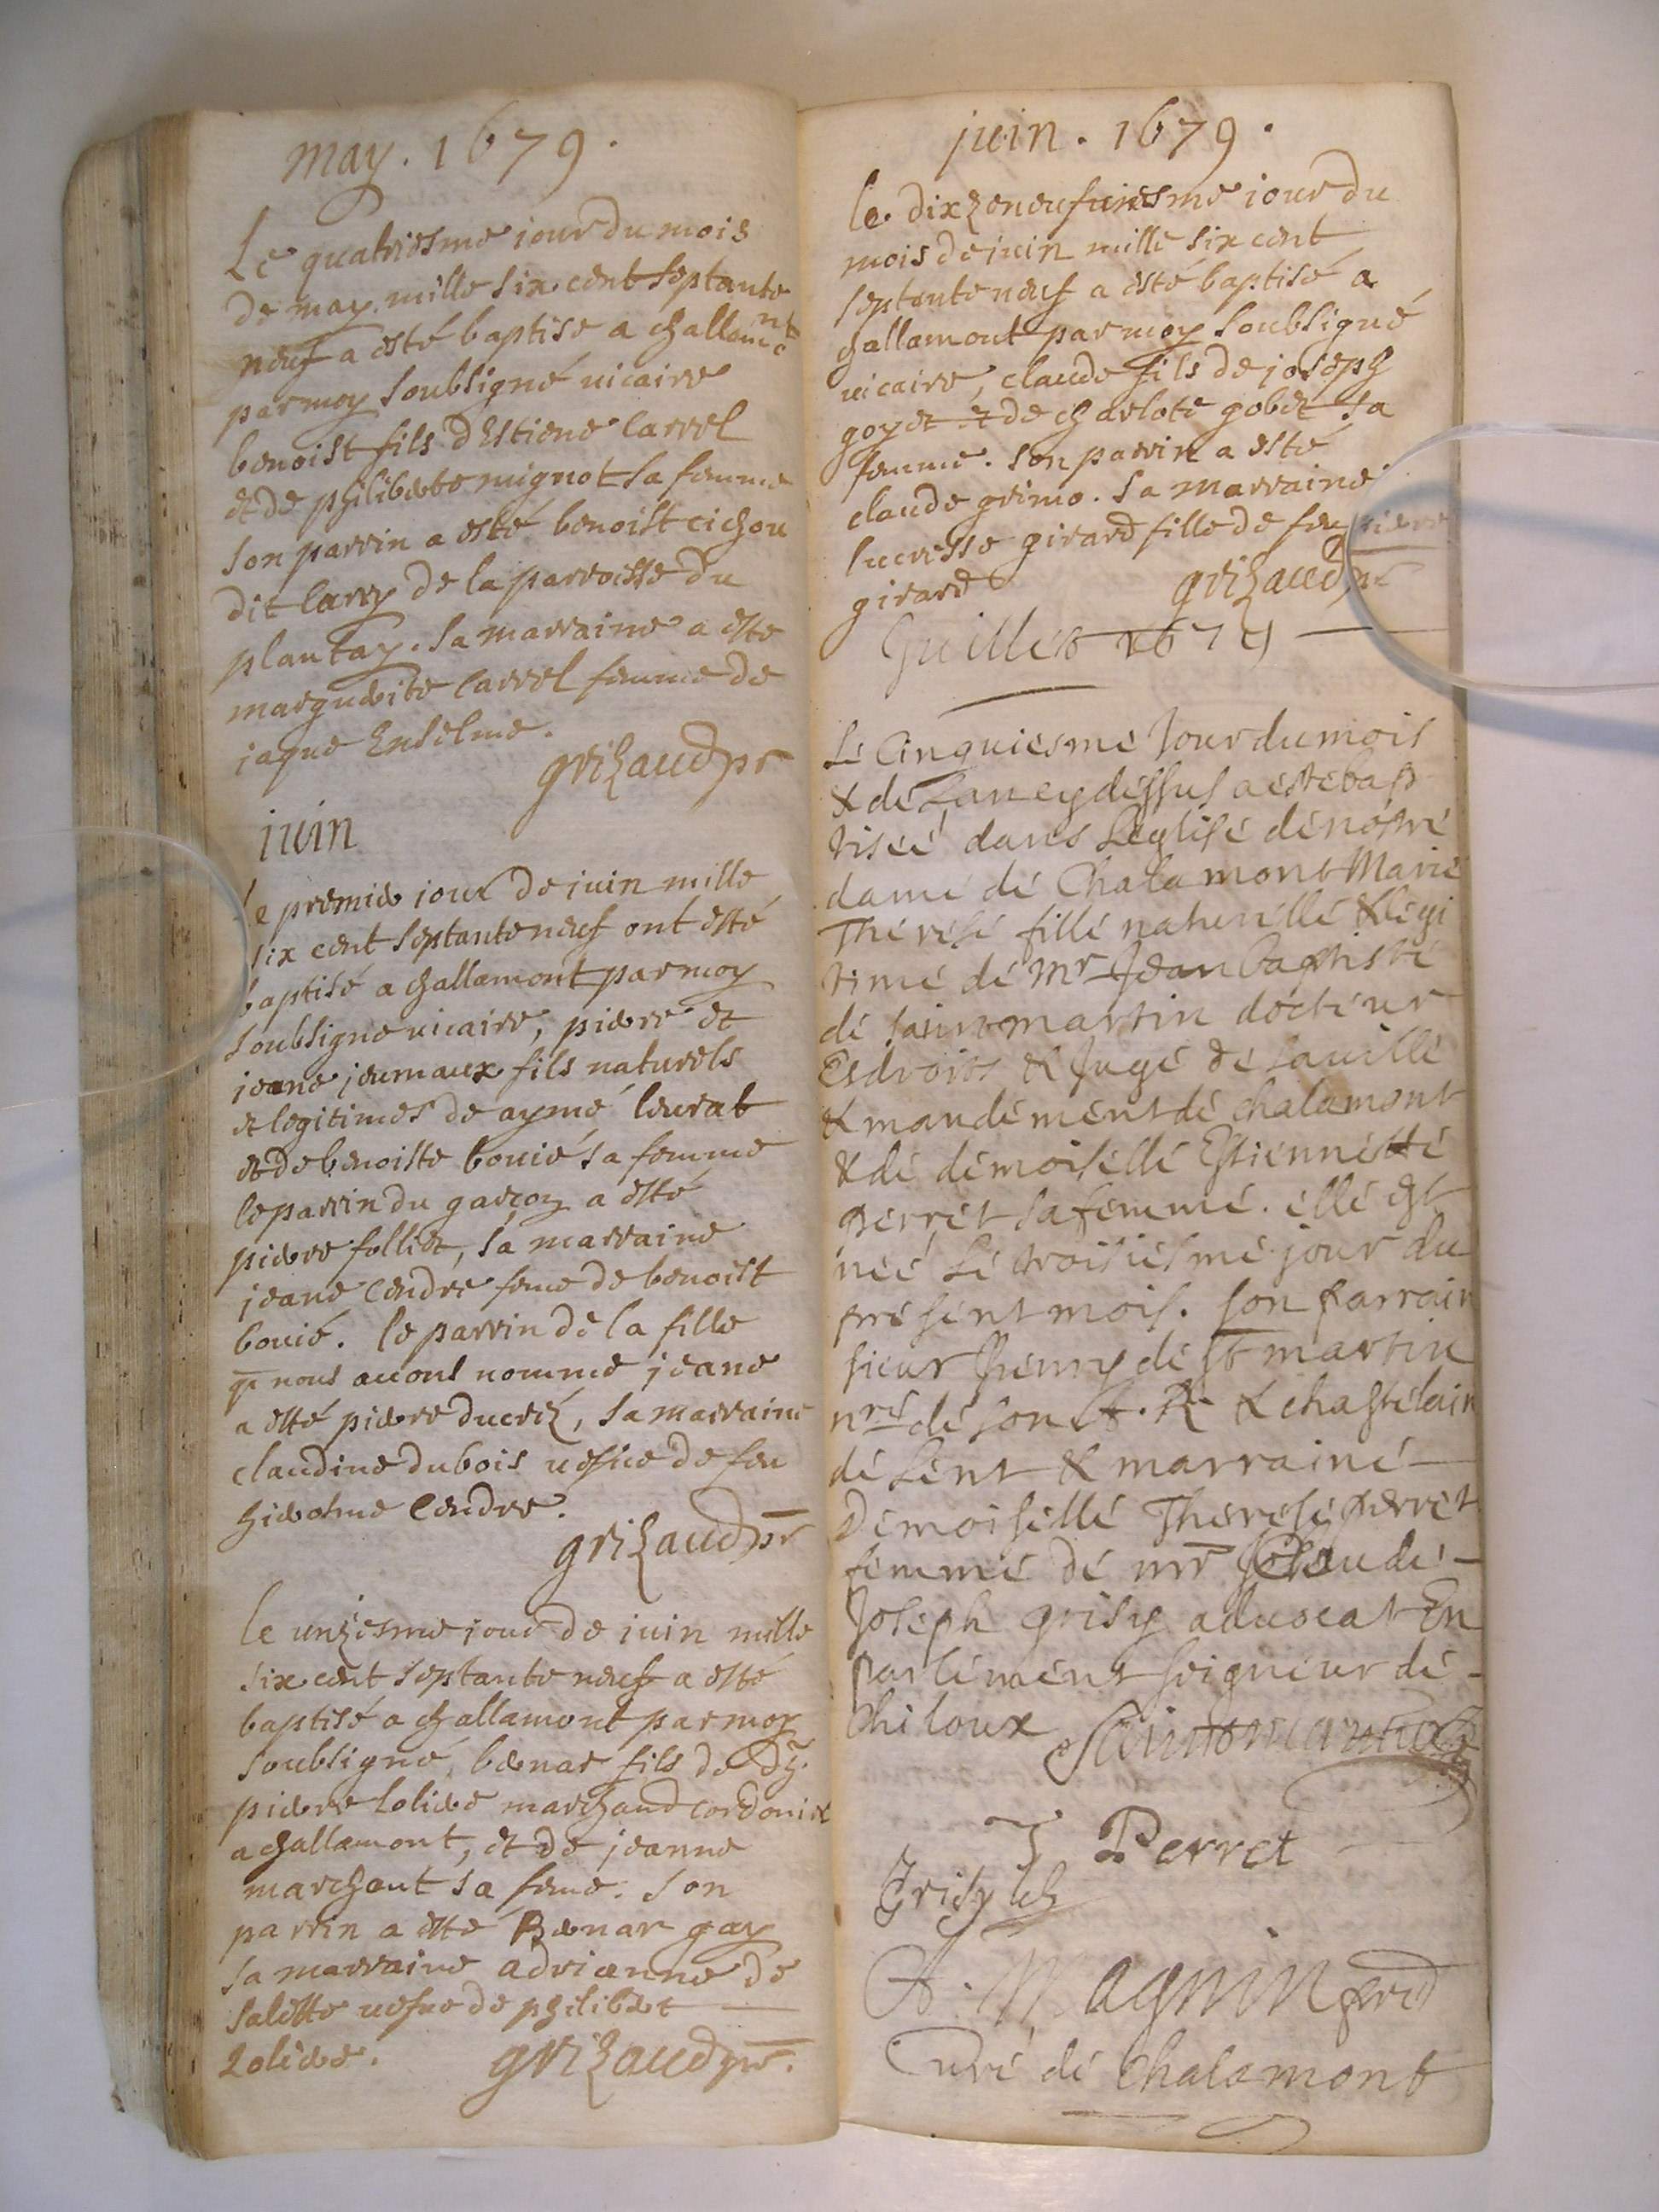 may. 1679.
Le quatriesme jour du mois
de may mille six cent septante
neuf a esté baptise a challamont
par moy soubsigné vicaire
benoist fils d'Estiene carrel
et de philiberte mignot sa femme
son parrin a esté benoist cichou
dit larry de la parroisse du
plantay. sa marraine a este
marguerite carrel femme de
jaque Enselme.
grizaud pr
juin
le premier jour de juin mille
six cent septante neuf ont esté
baptisé a challamont par moy
soubsigne vicaire, pierre et
jeane jeumaux fils naturels
et legitimes de aymé leurat
et de benoiste bouié sa femme
le parrin du garçon a esté
pierre folliet, sa marraine
jeane Cendre feme de benoist
bouié. le parrin de la fille
q nous auons nomme jeane
a esté pierre ducrez, sa marraine
claudine dubois uefue de feu
hierosme Cendre.
grizaud pr
le unziesme jour de juin mille
six cent septante neuf a esté
baptisé a challamont par moy
soubsigné, bernar fils de
pierre Lolier marchand cordonier
a challamont, et de jeanne
marchant sa feme. son
parrin a este Bernar gay
sa marraine adrianne de
salette uefue de philibert
Lolier. grizaud pr.
juin. 1679.
le dixzeneufuiesme jour du
mois de juin mille six cent
septante neuf a esté baptisé a
challamont par moy soubsigné
vicaire, claude fils de joseph
goyet et de charlote gobet sa
femme. son parrin a esté
claude grimo. sa marraine
lucresse girard fille de feu pierre
girard grizaud pr
Juillet 1679
Le Cinquiesme Jour du mois
& de Lan cy dessus a este bap
tisée dans Leglise de nostre
dame de Chalamont Marie
Therese fille naturelle & legi
time de Mr Jean baptiste
de sainmartin docteur
Esdroits & Juge de la uille
& mandement de chalamont
& de demoiselle Estiennette
perret sa femme. elle est
née Le troisiesme jour du
present mois. son parrain
sieur Henry de st martin
nre de son A. R. & chastelain
de Lent & marraine
Demoiselle Therese perret
femme de mr Claude
Joseph grisy aduocat En
parlement seigneur de
Chiloux Sainctmartin
T Perret
Grisy
A. Magnin
Curé de Chalamont